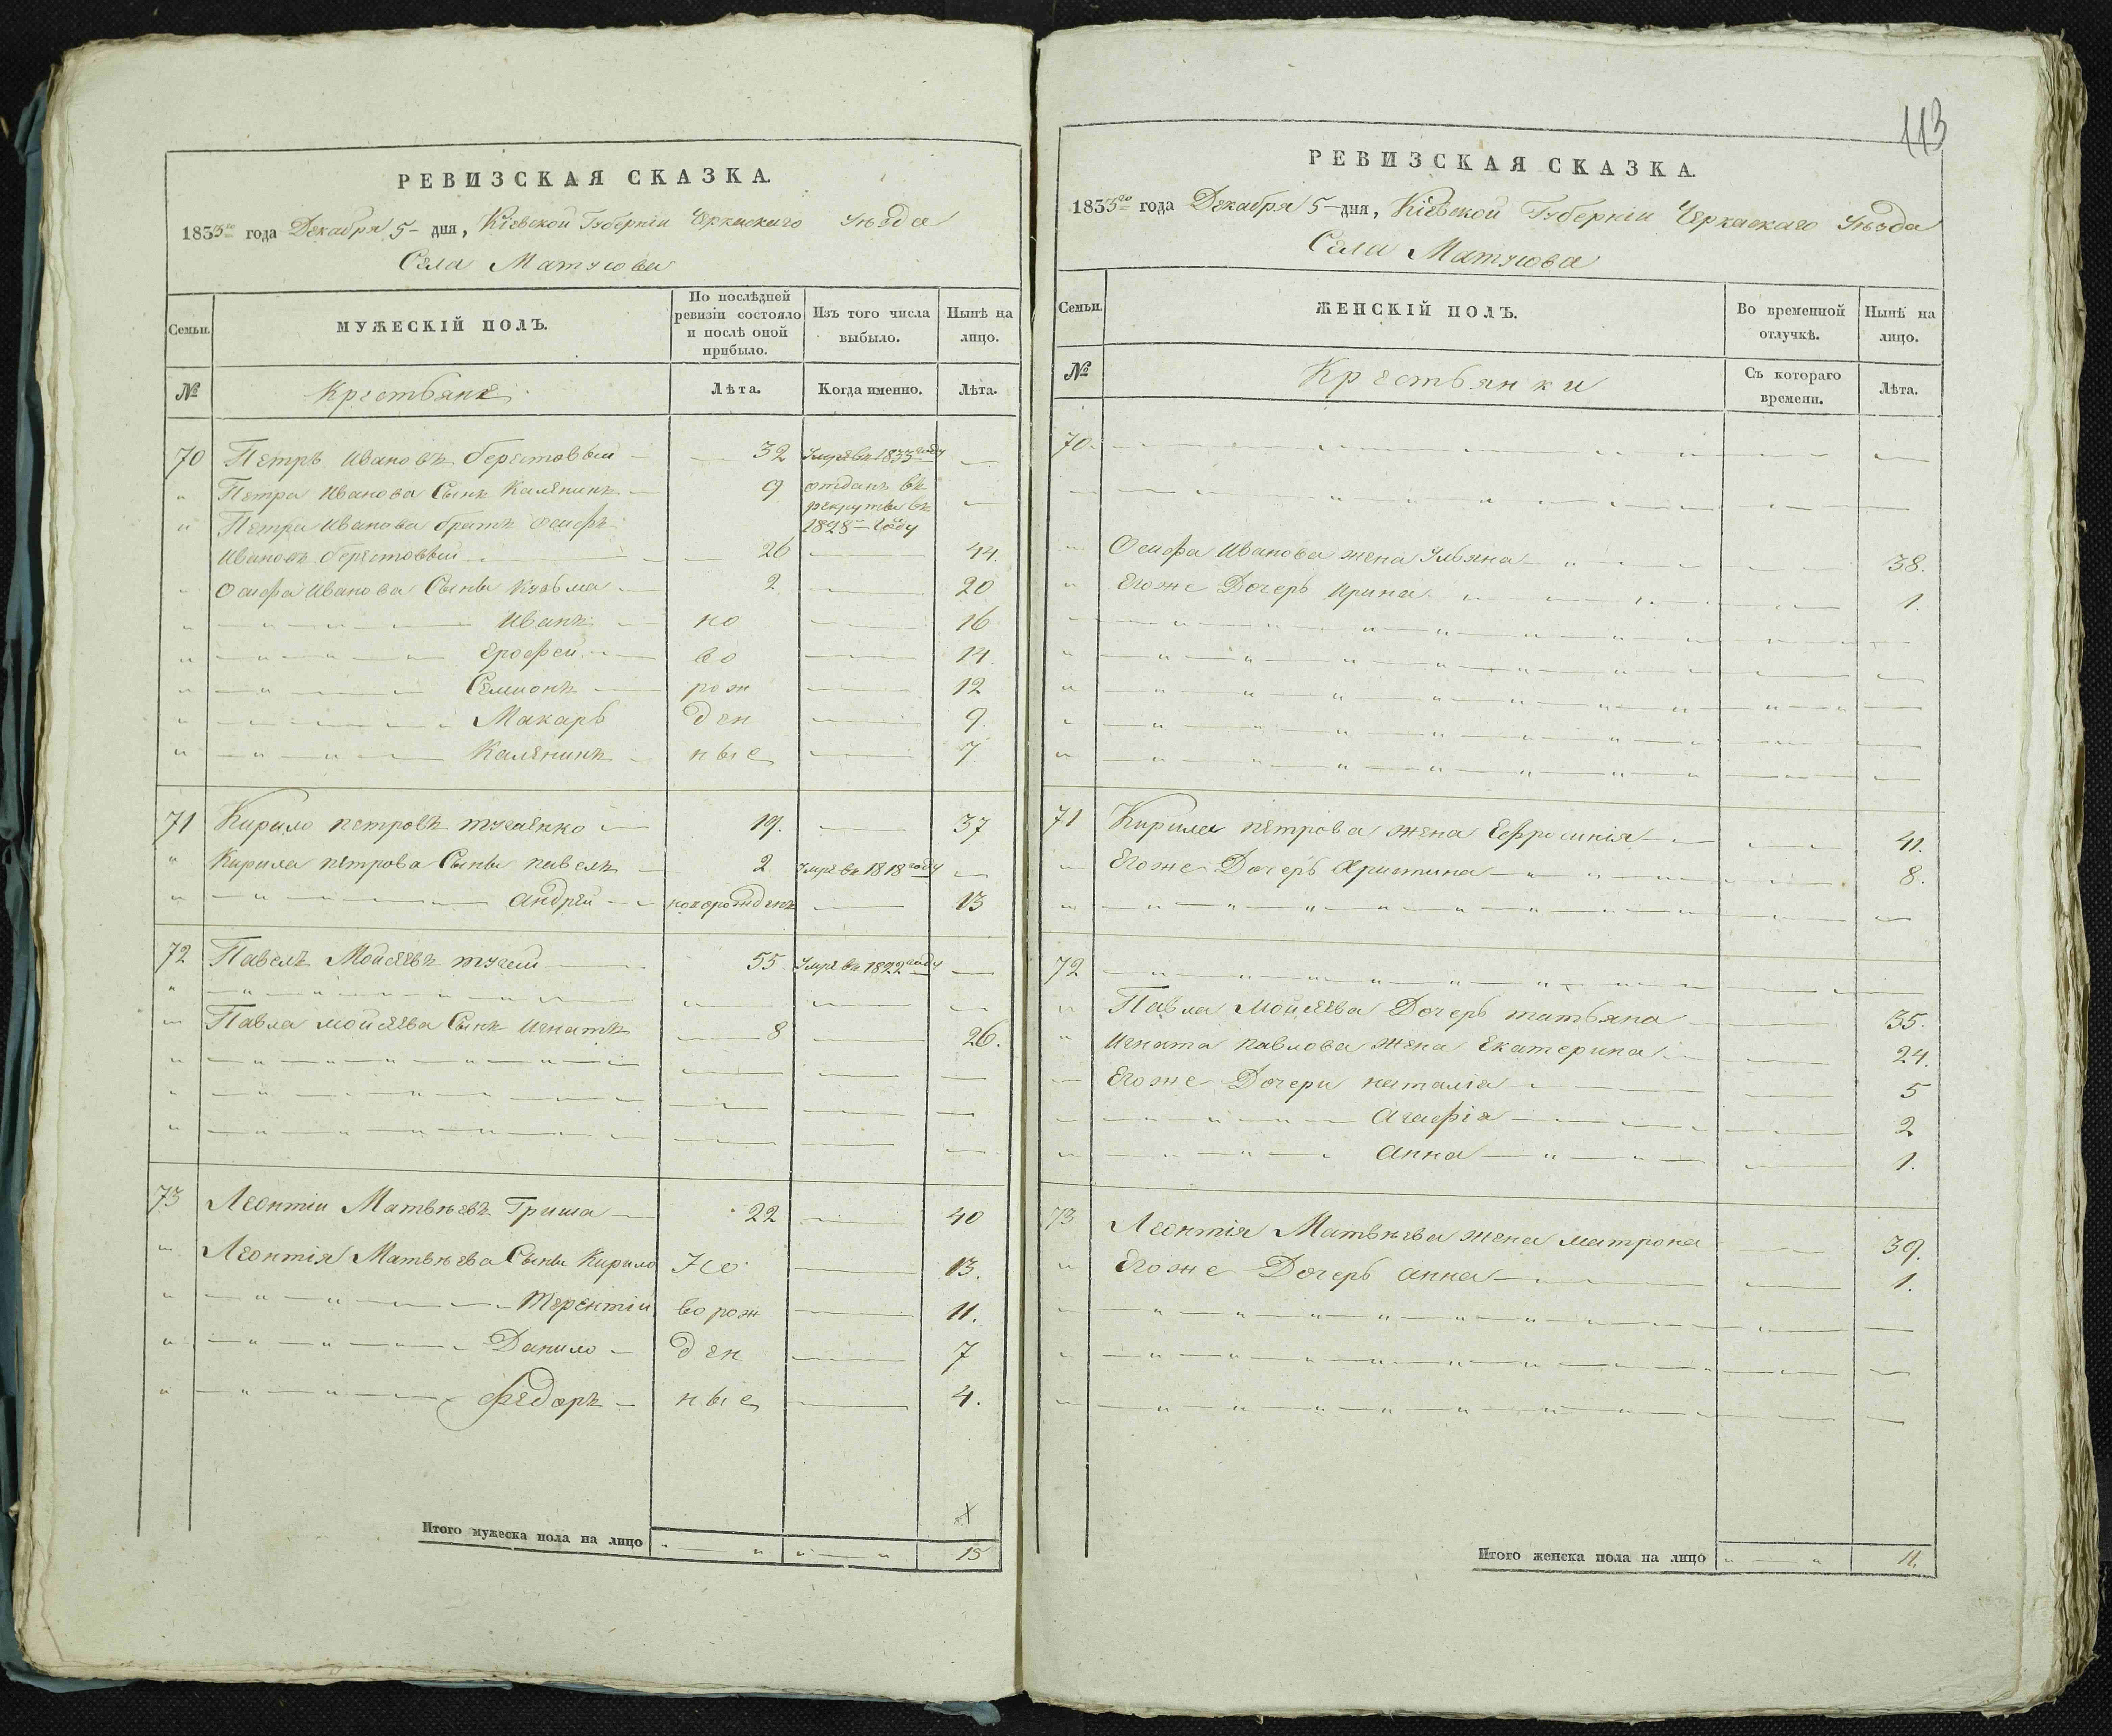 РЕВИЗСКАЯ СКАЗКА.
1835го года Декабря 5 дня, Кіевской Губерніи Черкаскаго Уѣзда
Села Матусова
Семьи.
МУЖЕСКІЙ ПОЛЪ.
По послѣдней ревизіи состояло и послѣ оной прибыло.
Изъ того числа выбыло.
Нынѣ на лицо.
№
Крестьяне
Лѣта.
Когда именно.
Лѣта.
70 Петръ Ивановъ берестовый 32 Умре въ 1833 году
Петра Иванова Сынъ Каленикъ 9 отданъ въ
рекруты въ
Петра Иванова братъ Осифъ 1828 году
Ивановъ берестовый 26 44.
Осифа Иванова Сыны Кузьма 2 20
Иванъ но 16
Ерофей во 14.
Семионъ рож 12
Макаръ ден 9.
Каленикъ ные 7
71 Кирило петровъ 19. 37
Кирила петрова Сыны павелъ 2 Умре въ 1818 году
андрей новорожденъ 13
72 Павелъ Мойсеевъ 55 Умре въ 1822 году
Павла мойсеева Сынъ Игнатъ 8 26.
73 Леонтій Матвѣевъ Гриша 22 40
Леонтія Матвѣева Сыны Кирило Но 13.
Терентій ворож 11.
Данило ден 7
Федоръ ные 4.
Итого мужеска пола на лицо 15
113
РЕВИЗСКАЯ СКАЗКА.
1835го года Декабря 5 дня, Кіевской Губерніи Черкаскаго Уѣзда
Села Матусова
Семьи.
ЖЕНСКІЙ ПОЛЪ.
Во временной отлучкѣ.
Нынѣ на лицо.
№
Крестьянки
Съ котораго времени.
Лѣта.
70.
Осифа Иванова жена Ульяна 38.
Егоже Дочерь Ирина 1.
71 Кирила петрова жена Ефросинія 41.
Егоже Дочерь Христина 8.
72
Павла Мойсеева Дочерь татьяна 35.
Игната павлова Жена Екатерина 24.
Егоже Дочери наталія 5
Агафія 2
Анна 1.
73 Леонтія Матвѣева жена матрона 39.
Егоже Дочерь анна 1.
Итого женска пола на лицо 11.